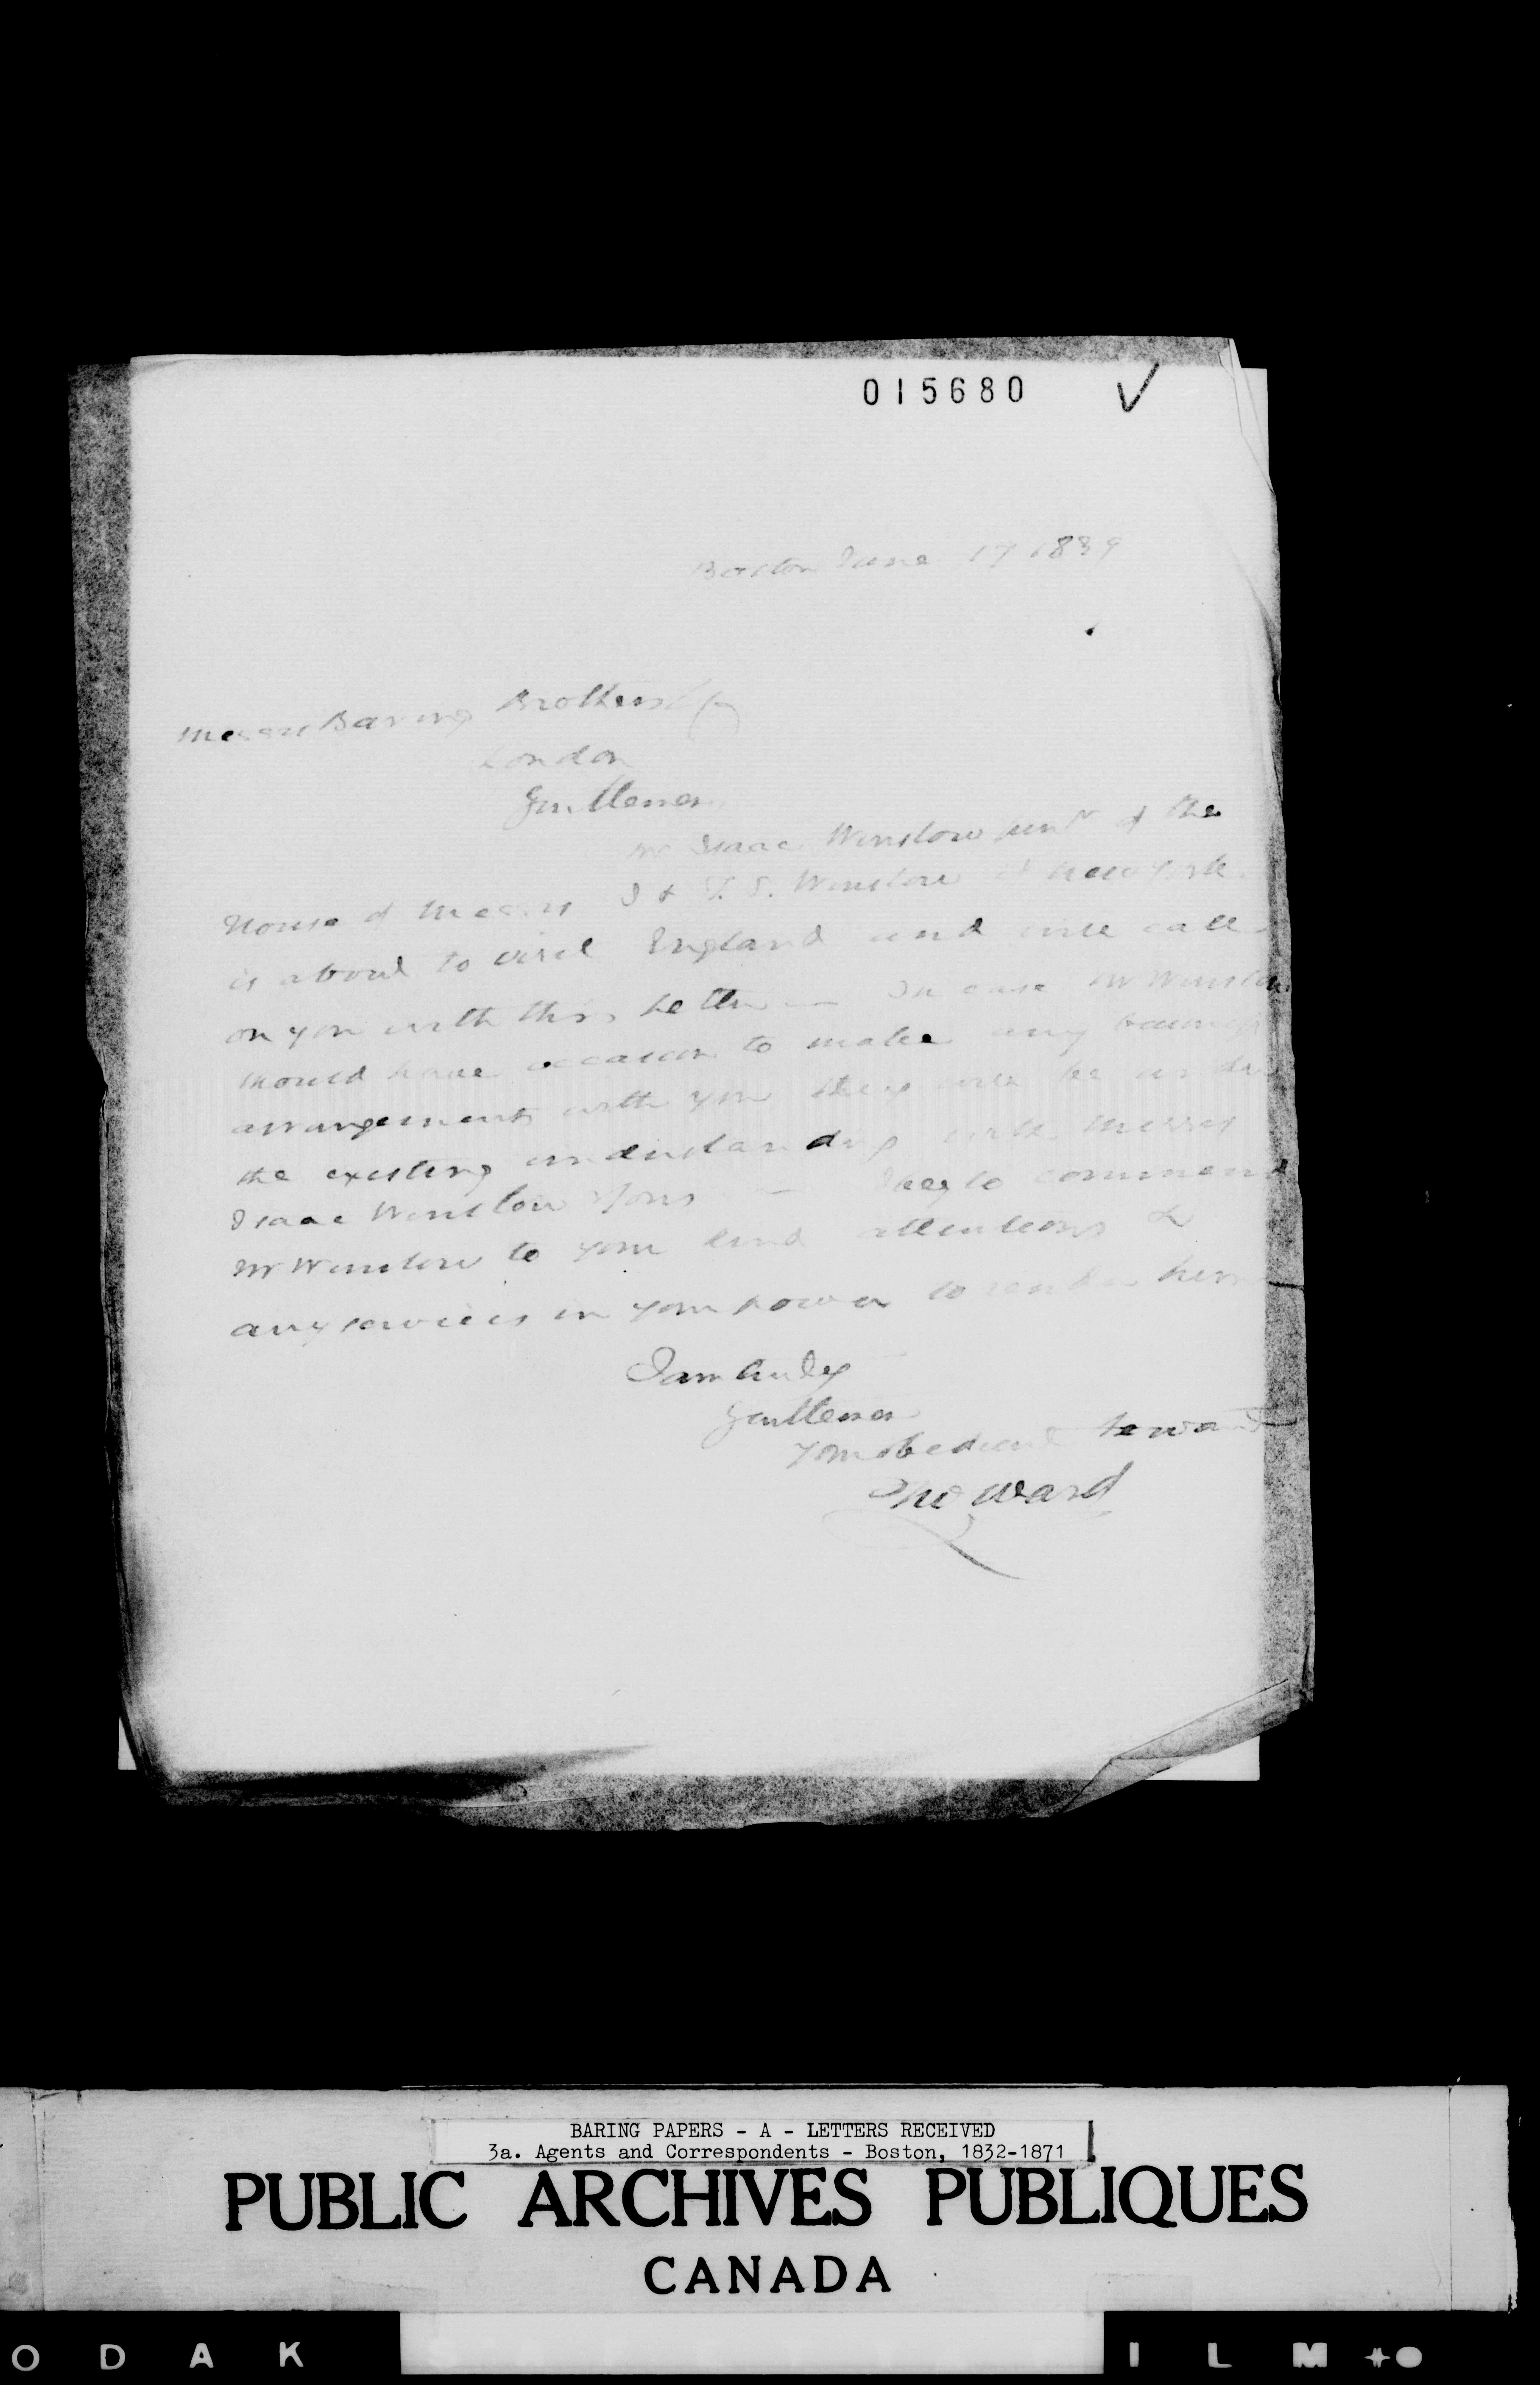 015680
Boston June 17 1839
Messrs Baring Brothers & Co
London
Gentlemen
Mr Isaac Winslow junr of the
House of Messrs I & T. S. Winslow of New York
is about to visit England and will call
on you with this letter — In case Mr Winslow
should have occasion to make any business
arrangements with you they will be under
the existing understanding with Messrs
Isaac Winslow & Sons — I beg to commend
Mr Winslow to your kind attentions &
any services in your power to render him
I am truly
Gentlemen
your obedient Servant
Tho W Ward
BARING PAPERS - A - LETTERS RECEIVED
3a. Agents and Correspondents - Boston, 1832-1871
PUBLIC ARCHIVES PUBLIQUES
CANADA
O D A K I L M